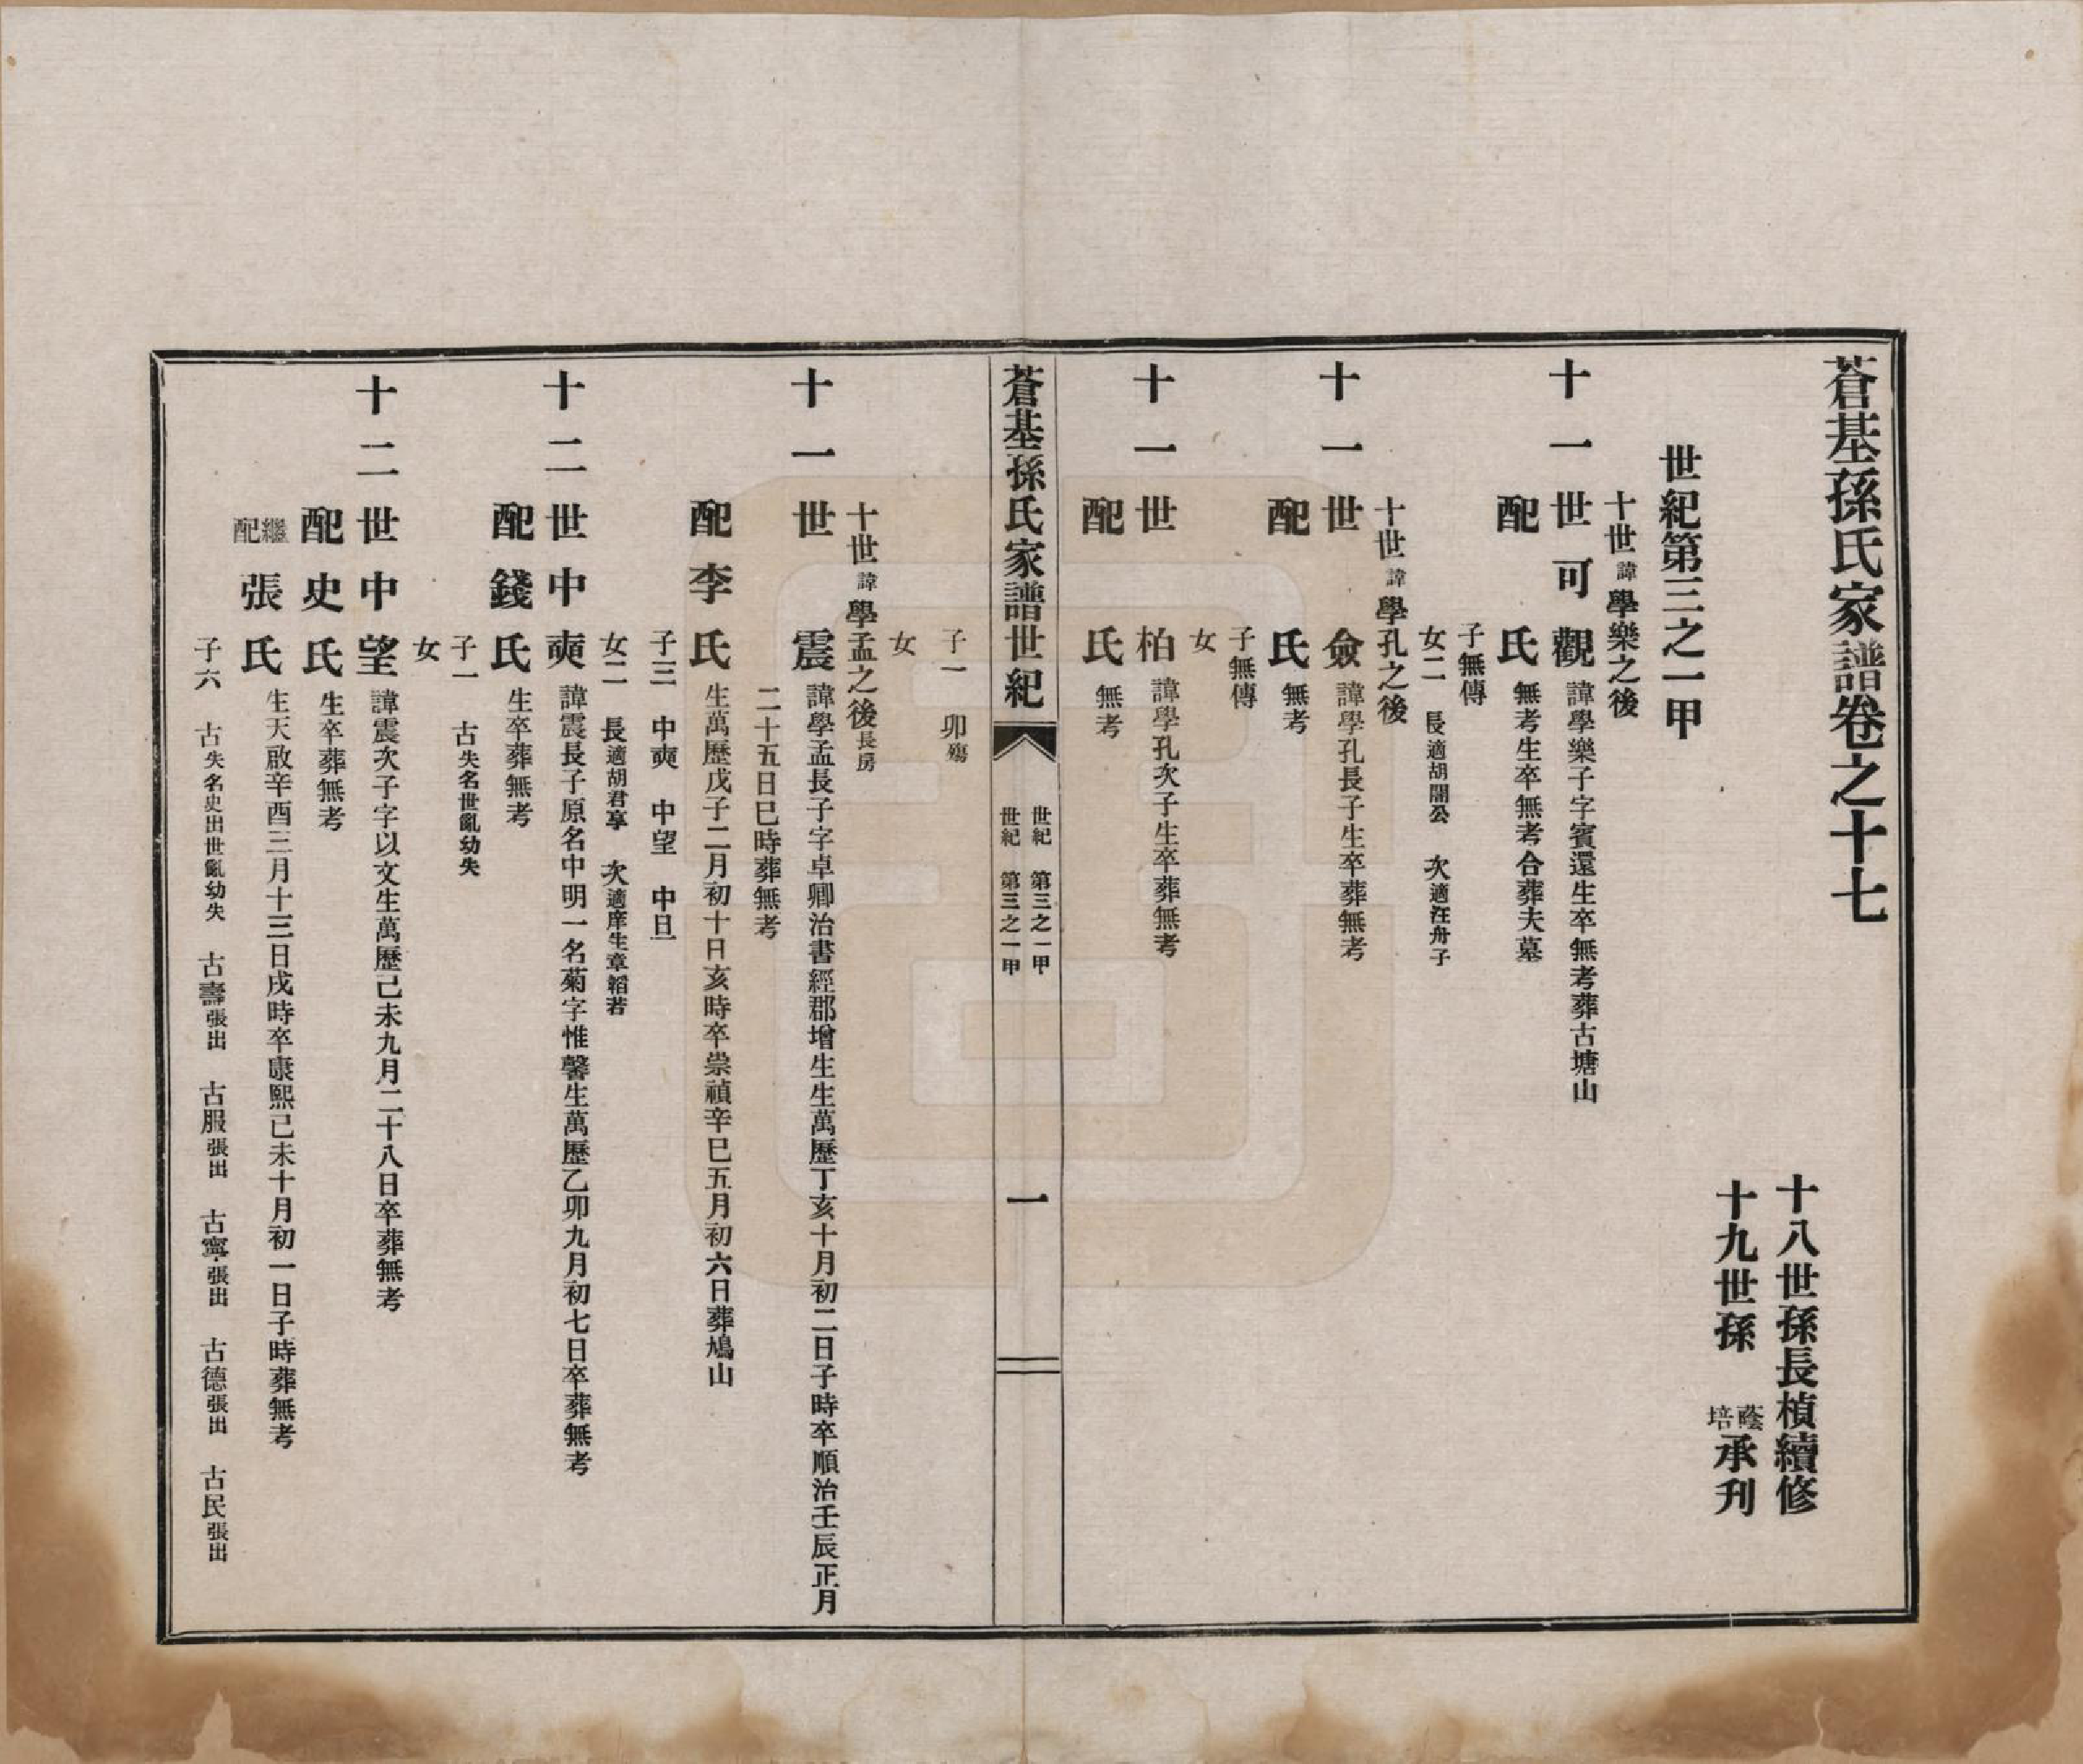 蒼基孫氏家譜卷之十七
十八世孫長楨續修
十九世孫蔭培承刋
世紀第三之一甲
十世諱學樂之後
十一世可觀諱學樂子字賓還生卒無考葬古塘山
配氏無考生卒無考合葬夫墓
子無傳
女二 長適胡閣公 次適汪舟子
十世諱學孔之後
十一世僉諱學孔長子生卒葬無考
配氏無考
子無傳
女
十一世柏諱學孔次子生卒葬無考
配氏無考
蒼基孫氏家譜世紀
世紀 第三之一甲
世紀 第三之一甲
一
子一 卯殤
女
十世諱學孟之後長房
十一世震諱學孟長子字卓卿治書經郡增生生萬歷丁亥十月初二日子時卒順治壬辰正月
二十五日巳時葬無考
配李氏生萬歷戊子二月初十日亥時卒崇禎辛巳五月初六日葬鳩山
子三 中奭 中望 中旦
女二 長適胡君享 次適庠生章韜若
十二世中奭諱震長子原名中明一名菊字惟馨生萬歷乙卯九月初七日卒葬無考
配錢氏生卒葬無考
子一 古失名世亂幼失
女
十二世中望諱震次子字以文生萬歷己未九月二十八日卒葬無考
配史氏生卒葬無考
繼配張氏生天啟辛酉三月十三日戌時卒康熙己未十月初一日子時葬無考
子六 古失名史出世亂幼失 古壽張出 古服張出 古寧張出 古德張出 古民張出